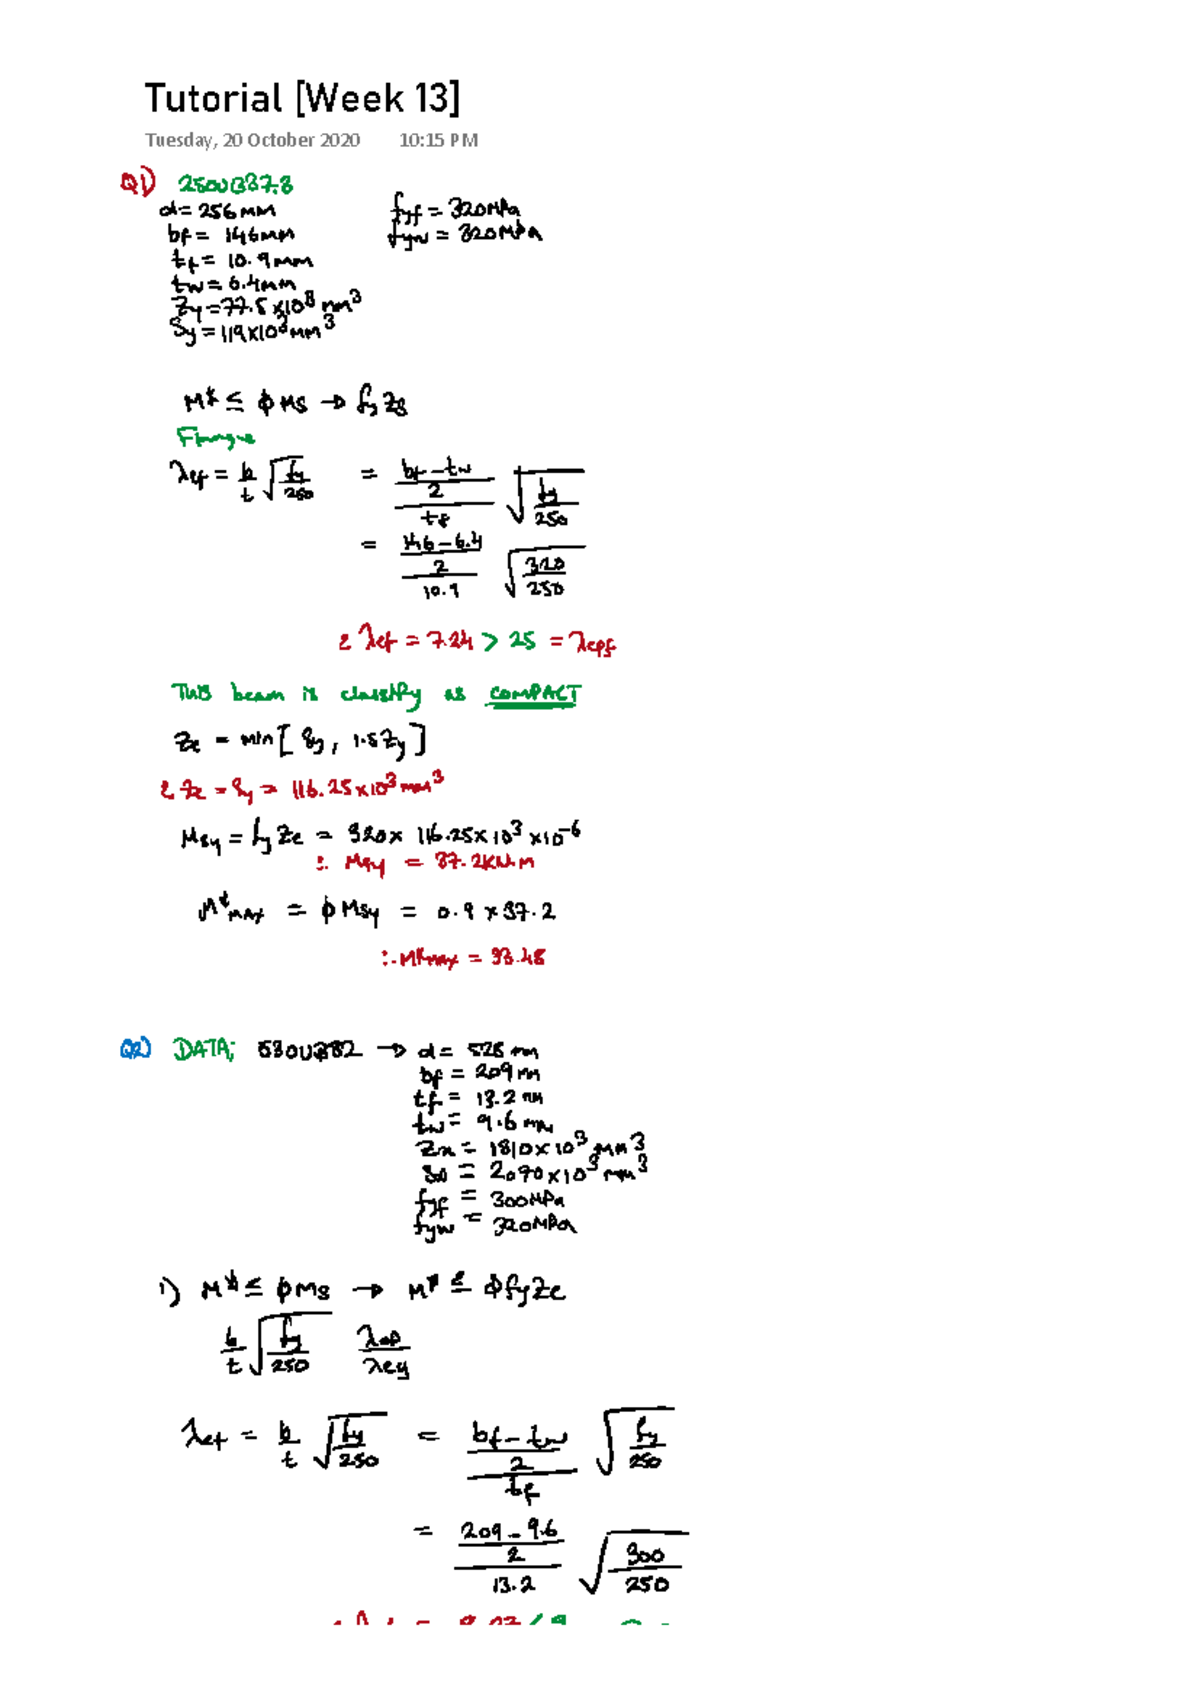 Tutorial [Week 13]
Tuesday, 20 October 2020 10:15 PM
Q1) 250UB37.3
d = 256mm fyf = 320MPa
bf = 146mm fyw = 320MPa
tf = 10.9mm
tw = 6.4mm
Zy = 77.5 x10³ mm³
Sy = 119x10³ mm³
M* ≤ ϕMs → fyZs
Flange
λef = b/t √(fy/250) = ((bf - tw)/2)/tf √(fy/250)
= ((146 - 6.4)/2)/10.9 √(320/250)
λef = 7.24 > 25 = λepf
This beam is classify as COMPACT
Ze = min[Sy, 1.5Zy]
Ze = Sy = 116.25x10³ mm³
Msy = fyZe = 320x 116.25x10³ x10⁻⁶
∴ Msy = 37.2KN.m
M*max = ϕMsy = 0.9 x 37.2
∴ M*max = 33.48
Q2) DATA; 530UB82 → d = 528 mm
bf = 209mm
tf = 13.2 mm
tw = 9.6 mm
Zx = 1810x10³ mm³
= 2090x10³ mm³
fyf = 300MPa
fyw = 320MPa
1) M* ≤ ϕMs → M* ≤ ϕfyZe
b/t √(fy/250) λep/λey
λef = b/t √(fy/250) = ((bf - tw)/2)/tf √(fy/250)
= ((209 - 9.6)/2)/13.2 √(300/250)